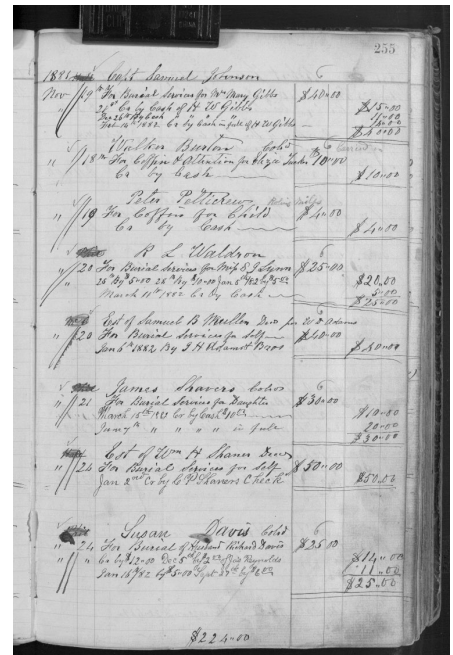 255
1881 Capt Samuel Johnson 6
Nov 19th For Burial Services for Mrs Mary Gibbs $40-00
" 26th Cr by Cash of H W Gibbs $15-00
Dec 26th By Cash " " 11-00
Feb 14th 1882 Cr by Cash in full of H W Gibbs
$40-00
Walker Burton Cold 6
" 18th For Coffin & Attention for Tucker $10-00
Cr by Cash $10-00
Peter Petticrew
" 19 For Coffin for Child $4-00
Cr by Cash $4-00
R L Waldron 6
" 20 For Burial Services for Wife E J Lynn $25-00
$20-00
March 11th 1882 Cr by Cash 5-00
$25-00
Est of Samuel B Mullen Decd per W D Adams
" 20 For Burial Services for Self $40-00
Jan 6th 1882 By J H Adams & Bros $40-00
James Shavers Cold 6
" 21 For Burial Services for Daughter $30-00
March 15th Cr by Cash $10 $10-00
June 7th " " " " in full 20-00
$30-00
Est of Wm H Shaner Decd
" 24 For Burial Services for Self $50-00
Jan 2nd Cr by C P Shavers Check $50-00
Susan Davis Cold 6
" 24 For Burial of Husband Richard Davis $25-00
" " Cr by $12-00 Dec 5th by $2 of Jas Reynolds $14-00
Jan 16th /82 by $5-00 Sept by $6 11-00
$25-00
$224-00